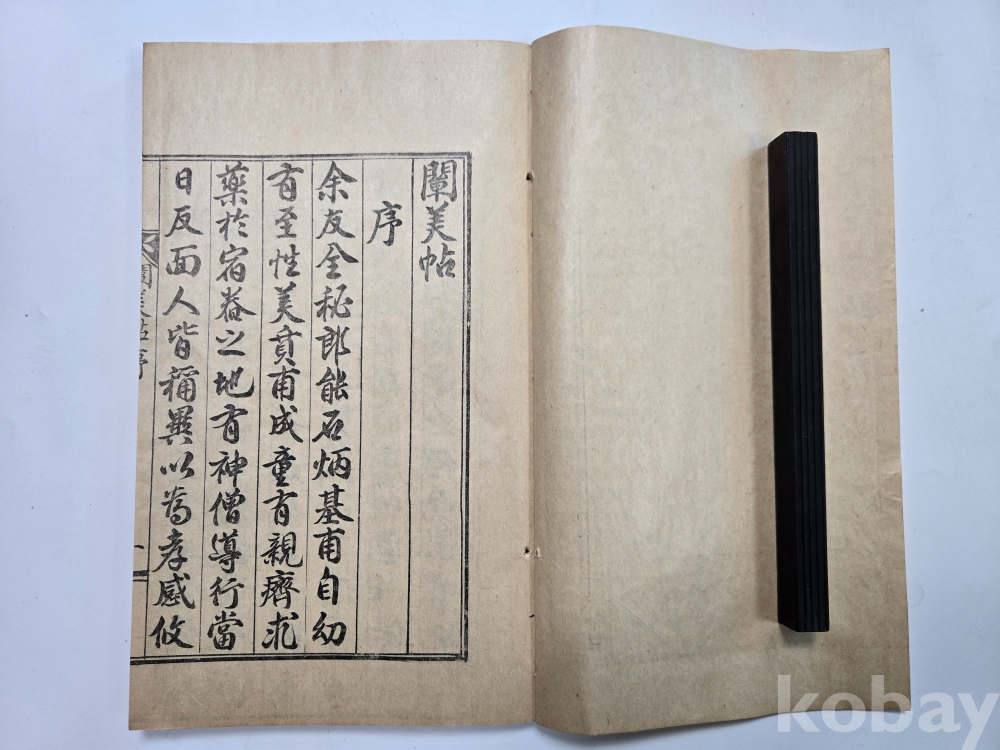 闡美帖
序
余友全秘郎能石炳基甫自幼
有至性美質甫成童有親癠求
藥於宿眷之地有神僧導行當
日反面人皆稱異以為孝感攸
闡美帖序
一
kobay